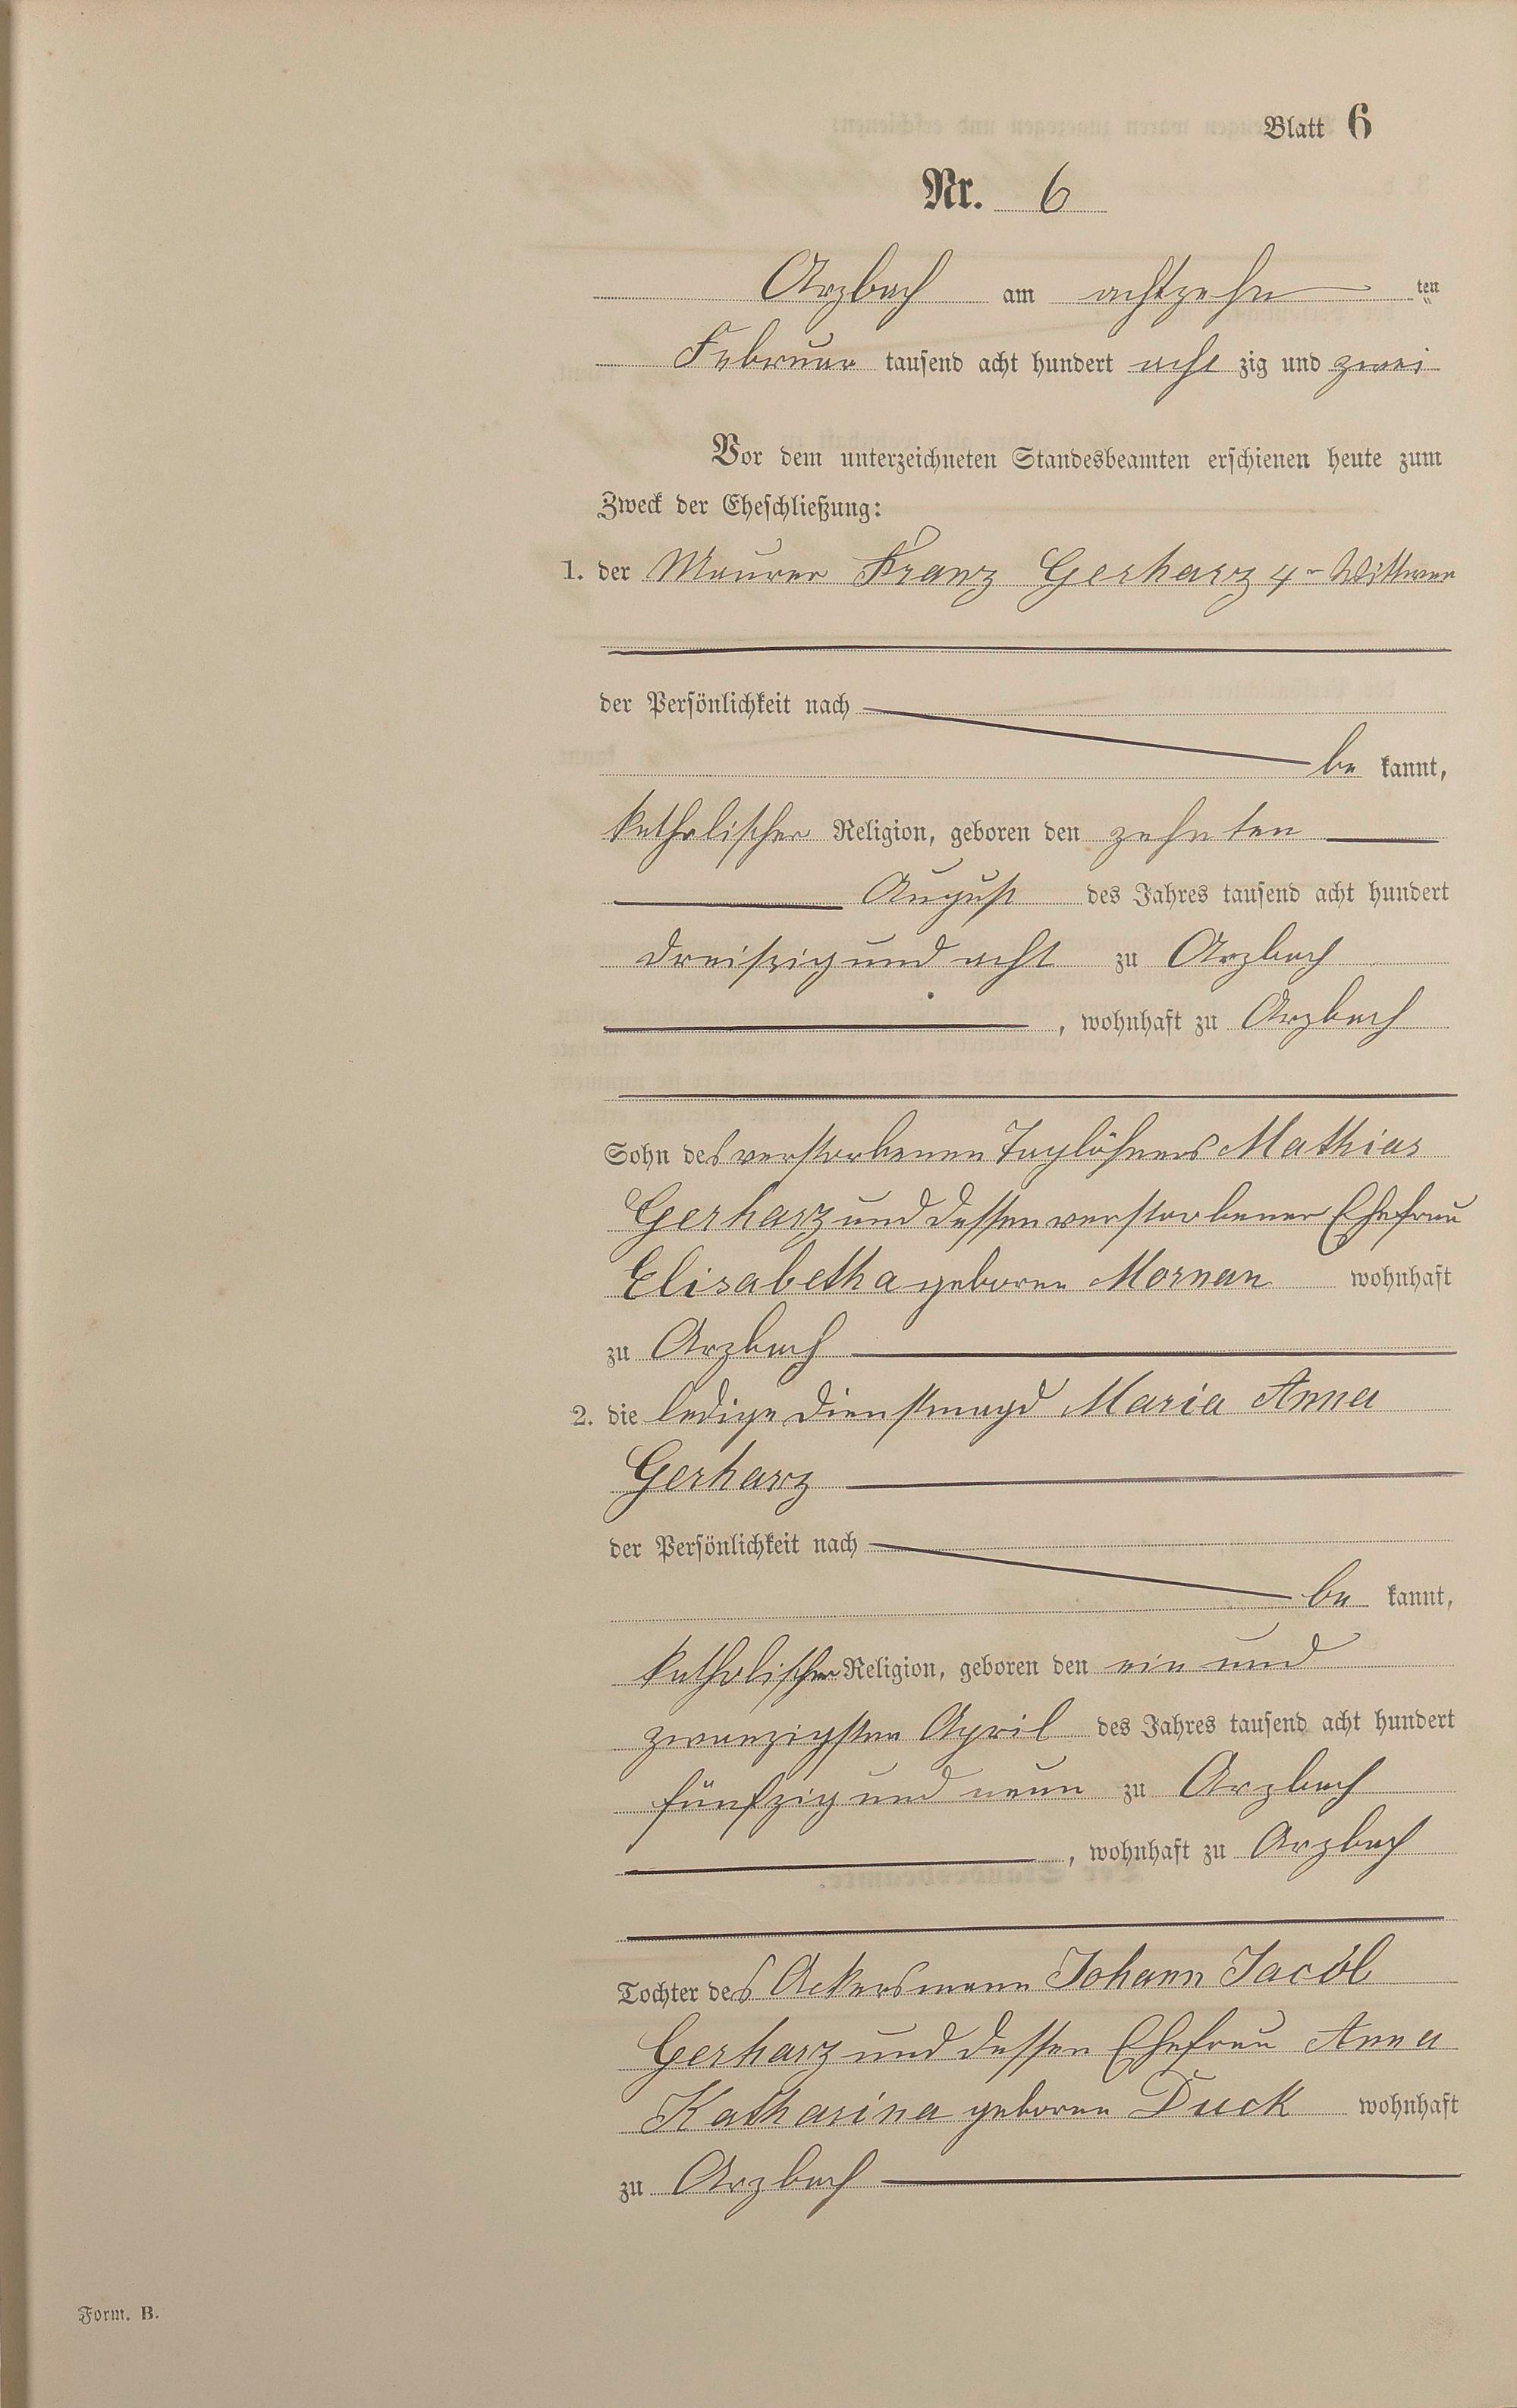 Blatt 6
Nr. 6
Arzbach am achtzehn ten
Februar tausend acht hundert acht zig und zwei
Vor dem unterzeichneten Standesbeamten erschienen heute zum
Zweck der Eheschließung:
1. der Maurer Franz Gerharz 4r Wittwer
der Persönlichkeit nach
be kannt,
katholischer Religion, geboren den zehnten
August des Jahres tausend acht hundert
dreißig und acht zu Arzbach
, wohnhaft zu Arzbach
Sohn des verstorbenen Taglöhners Mathias
Gerharz und dessen verstorbener Ehefrau
Elisabetha geborene Mornan wohnhaft
zu Arzbach
2. die ledige Dienstmagd Maria Anna
Gerharz
der Persönlichkeit nach
be kannt,
katholischer Religion, geboren den ein und
zwanzigsten April des Jahres tausend acht hundert
fünfzig und neun zu Arzbach
, wohnhaft zu Arzbach
Tochter des Ackersmann Johann Jacob
Gerharz und dessen Ehefrau Anna
Katharina geborene Duck wohnhaft
zu Arzbach
Form. B.